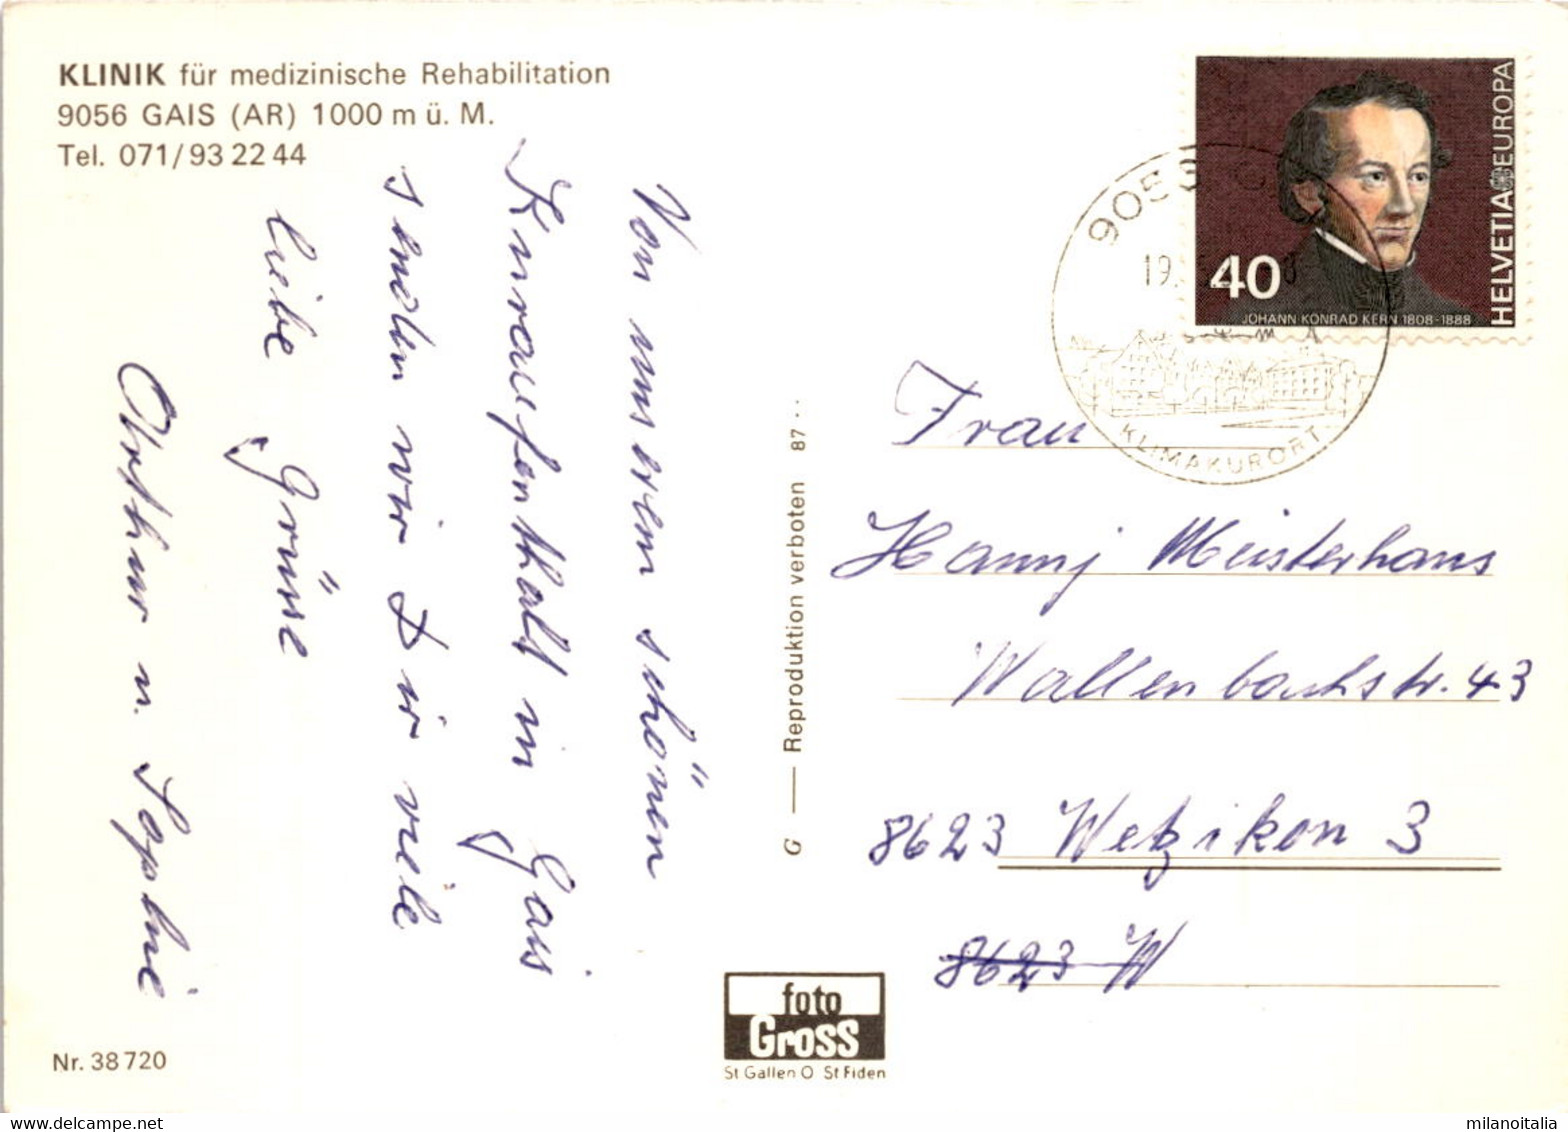 KLINIK für medizinische Rehabilitation
9056 GAIS (AR) 1000 m ü. M.
Tel. 071/93 22 44
Von unserem schönen
Kuraufenthalt in Gais
senden wir Dir viele
liebe Grüsse
Arthur u. Sophie
Nr. 38 720
G — Reproduktion verboten 87 ··
foto
Gross
St Gallen O St Fiden
HELVETIA EUROPA
40
JOHANN KONRAD KERN 1808-1888
905
19.
KLIMAKURORT
Frau
Hanny Meisterhans
Wallenbachstr. 43
8623 Wetzikon 3
8623 W
milanoitalia